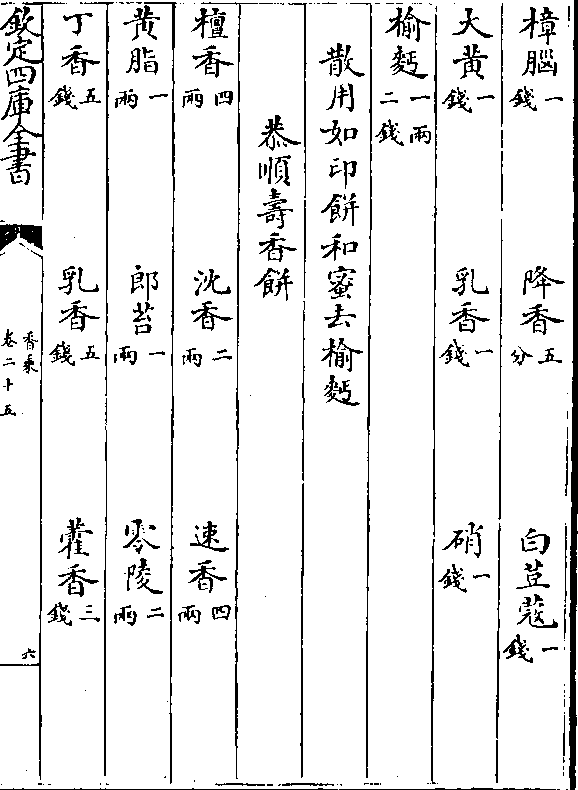 樟腦一錢 降香五分 白荳蔻一錢
大黃一錢 乳香一錢 硝一錢
榆麪一兩二錢
散用如印餅和蜜去榆麪
恭順壽香餅
檀香四兩 沈香二兩 速香四兩
黃脂一兩 郎苔一兩 零陵二兩
丁香五錢 乳香五錢 藿香三錢
欽定四庫全書 香乘卷二十五 六